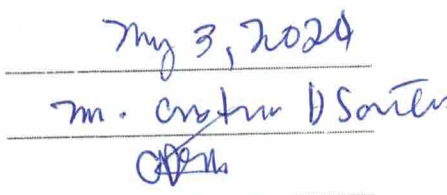 May 3, 2024
m. Cristina D Santos